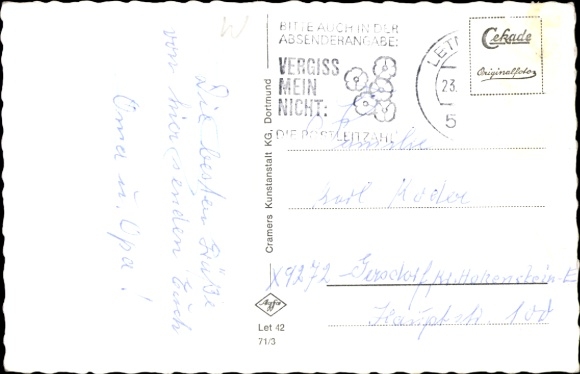 Die besten Grüße
von hier senden Euch
Oma u. Opa!
BITTE AUCH IN DER
ABSENDERANGABE:
VERGISS
MEIN
NICHT:
DIE POSTLEITZAHL
LETM
23.
5
Cekade
Originalfoto
Cramers Kunstanstalt KG, Dortmund
Agfa
Let 42
71/3
Familie
Karl Röder
X9272 Gersdorf/Kr. Hohenstein-E
Hauptstr. 100